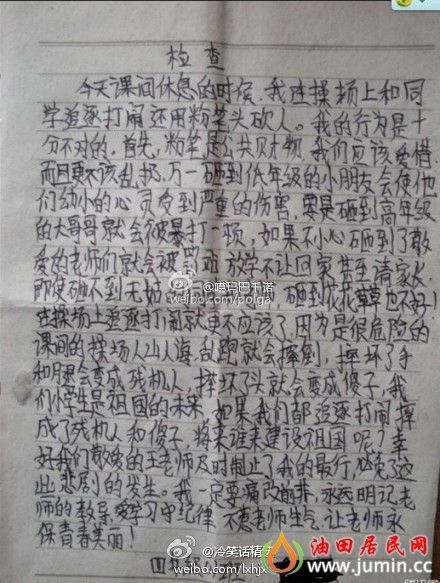 检查
今天课间休息的时候,我在操场上和同
学追逐打闹还用粉笔头砍人。我的行为是十
分不对的。首先,粉笔是公共财物,我们应该爱惜
而且更不该乱扔,万一砸到低年级的小朋友会使他
们幼小的心灵受到严重的伤害,要是砸到高年级
的大哥哥就会被暴打一顿,如果不小心砸到了敬
爱的老师们就会被罚站 放学不让回家 甚至请家长
即使砸不到无 砸到花花草草也不好
在操场上追逐打闹就更不应该了,因为是很危险的
课间的操场人山人海,乱跑就会摔倒,摔坏了手
和腿会变成残机人,摔坏了头就会变成傻子,我
们小学生是祖国的未来,如果我们都追逐打闹摔
成了残机人和傻子,将来谁来建设祖国呢?幸
好我们敬爱的王老师及时制止了我的最行,避免了这
些悲剧的发生。我一定要痛改前非,永远明记老
师的教导,爱学习守纪律,不惹老师生气,让老师永
保青春美丽!
四
@嘎玛巴千诺
weibo.com/polga
@冷笑话精
weibo.com/lxhjx
油田居民网
www.jumin.cc